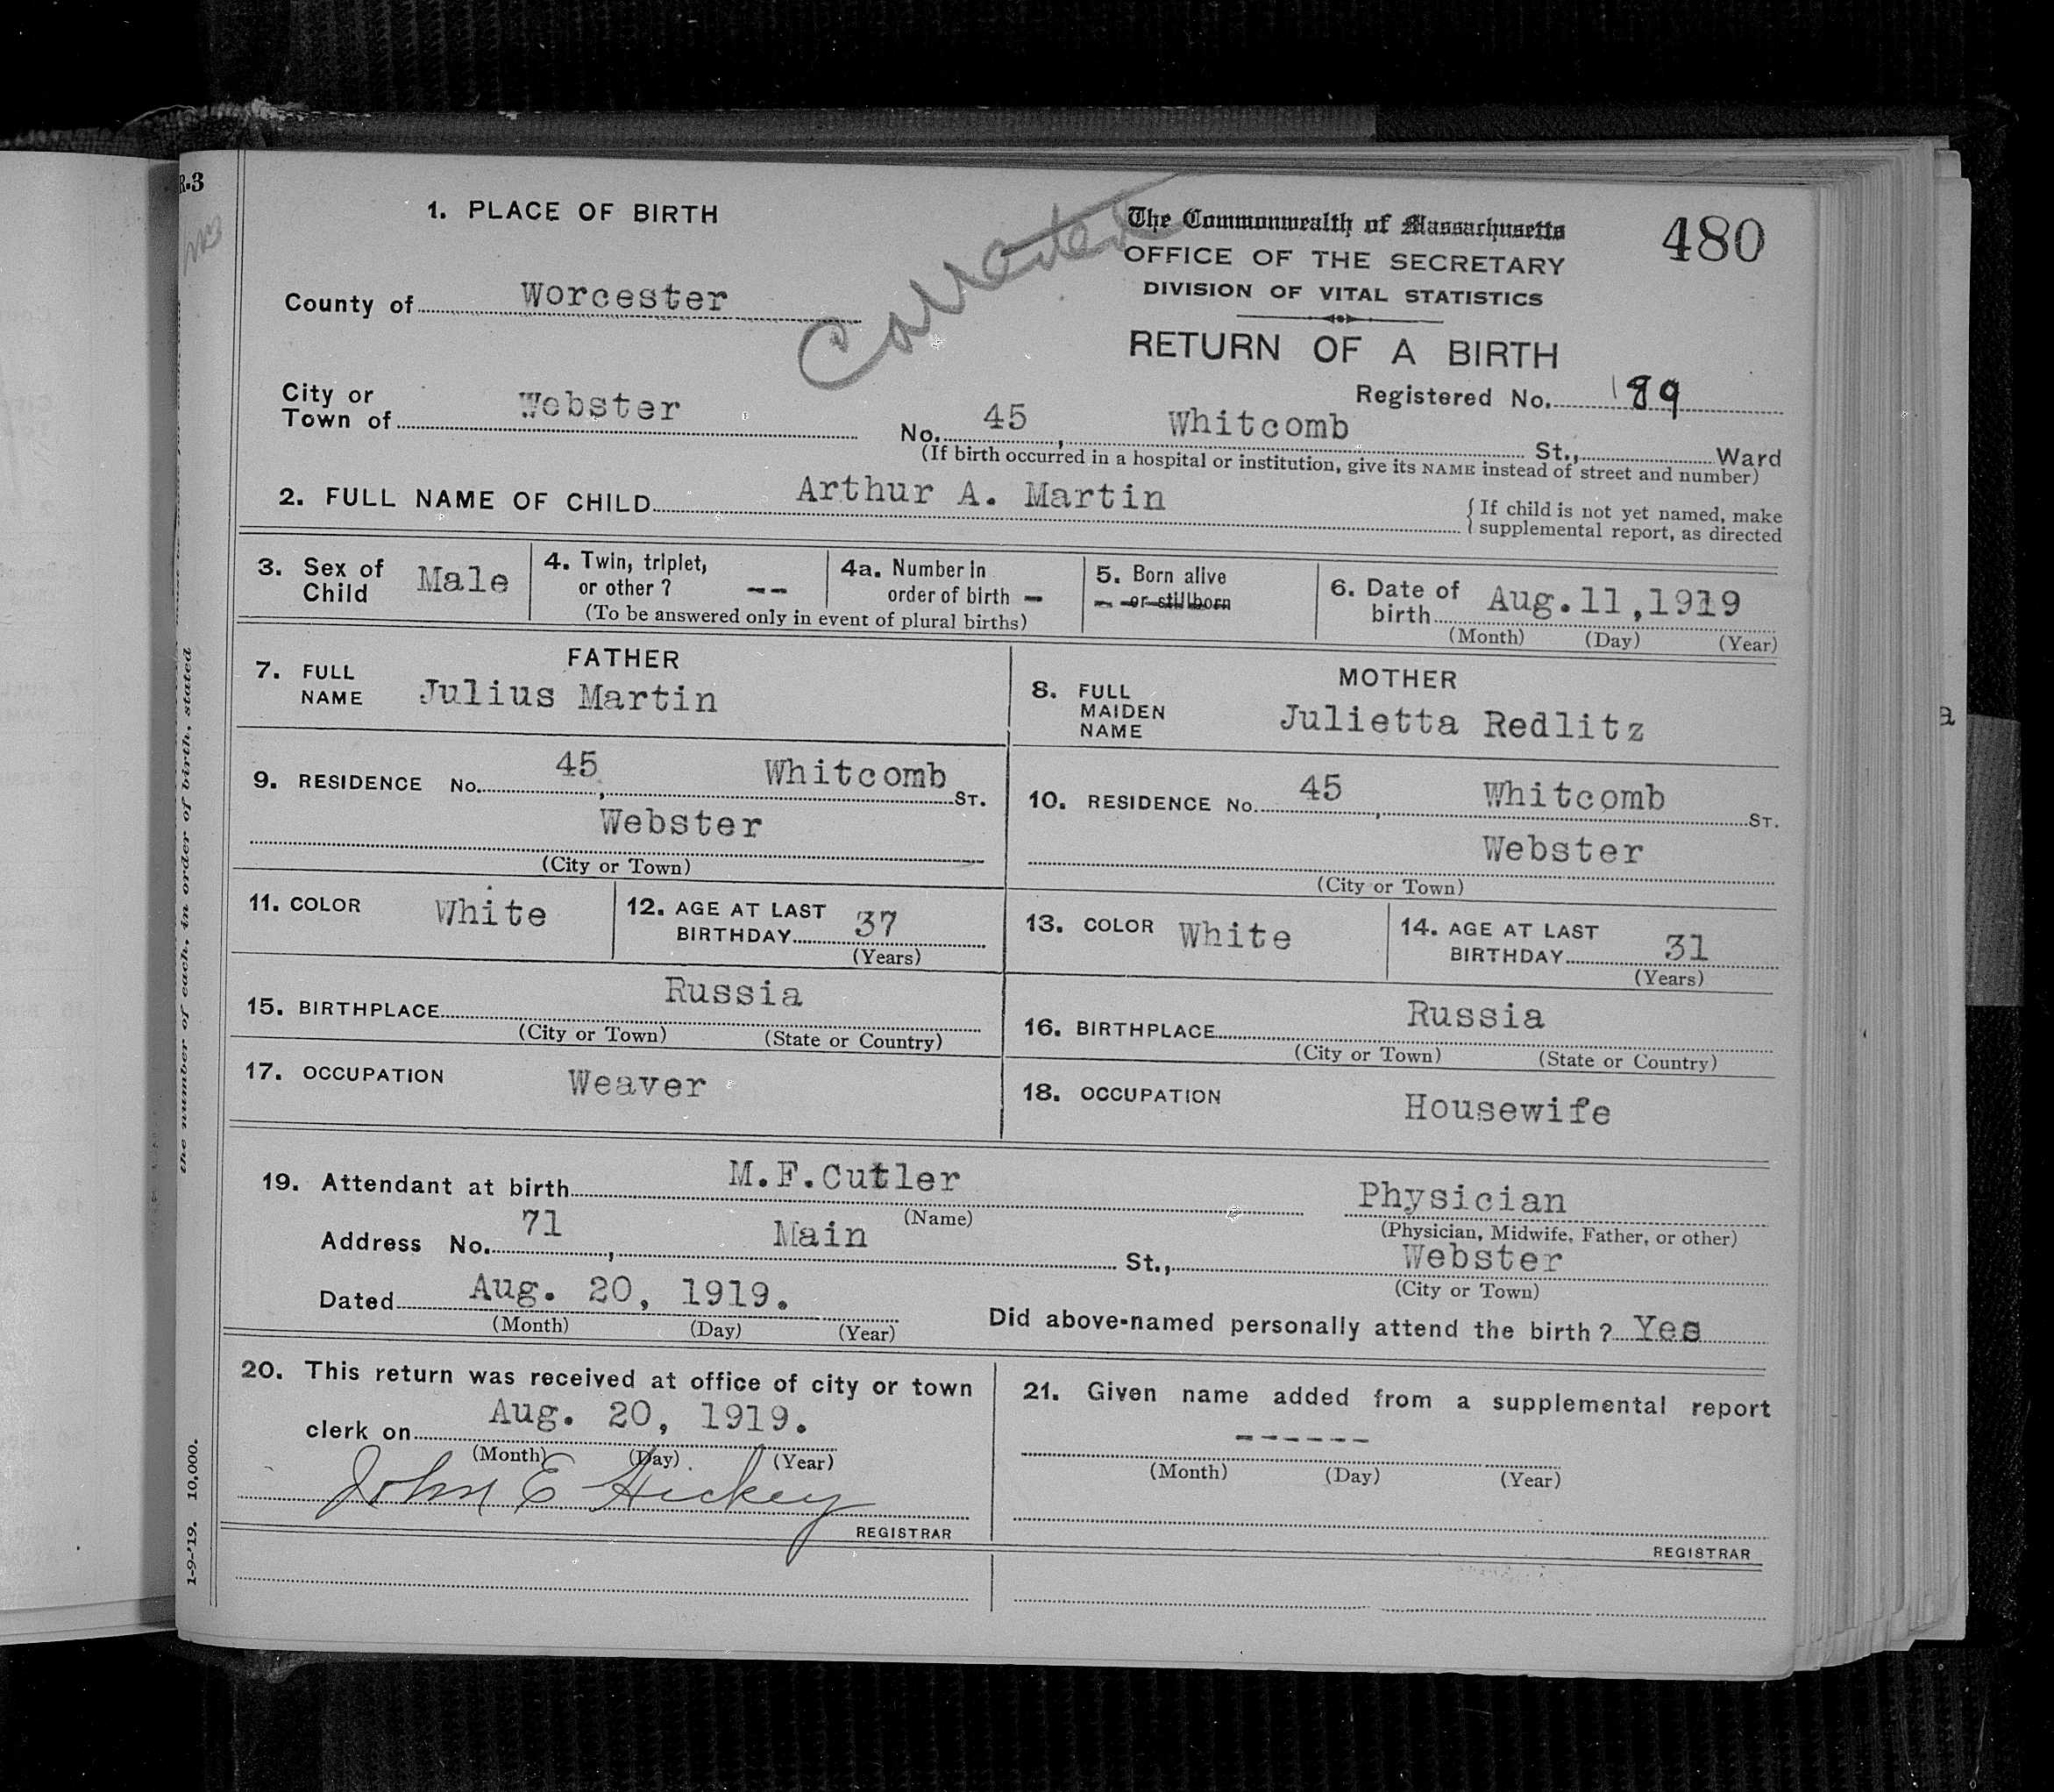 R-3
1. PLACE OF BIRTH
Corrected
The Commonwealth of Massachusetts
480
OFFICE OF THE SECRETARY
DIVISION OF VITAL STATISTICS
County of Worcester
RETURN OF A BIRTH
Registered No. 189
City or
Town of Webster
No. 45, Whitcomb St., Ward
(If birth occurred in a hospital or institution, give its NAME instead of street and number)
2. FULL NAME OF CHILD Arthur A. Martin
{ If child is not yet named, make
supplemental report, as directed
3. Sex of Child Male
4. Twin, triplet, or other? --
4a. Number in order of birth -
(To be answered only in event of plural births)
5. Born alive
-- or stillborn
6. Date of birth Aug. 11, 1919
(Month) (Day) (Year)
FATHER
7. FULL NAME Julius Martin
MOTHER
8. FULL MAIDEN NAME Julietta Redlitz
9. RESIDENCE No. 45, Whitcomb ST.
Webster
(City or Town)
10. RESIDENCE No. 45, Whitcomb ST.
Webster
(City or Town)
11. COLOR White
12. AGE AT LAST BIRTHDAY 37
(Years)
13. COLOR White
14. AGE AT LAST BIRTHDAY 31
(Years)
15. BIRTHPLACE Russia
(City or Town) (State or Country)
16. BIRTHPLACE Russia
(City or Town) (State or Country)
17. OCCUPATION Weaver
18. OCCUPATION Housewife
19. Attendant at birth M.F.Cutler Physician
(Name) (Physician, Midwife, Father, or other)
Address No. 71, Main St., Webster
(City or Town)
Dated Aug. 20, 1919.
(Month) (Day) (Year)
Did above-named personally attend the birth? Yes
20. This return was received at office of city or town
clerk on Aug. 20, 1919.
(Month) (Day) (Year)
John E Hickey
REGISTRAR
21. Given name added from a supplemental report
------
(Month) (Day) (Year)
REGISTRAR
the number of each, in order of birth, stated
1-9-'19. 10,000.